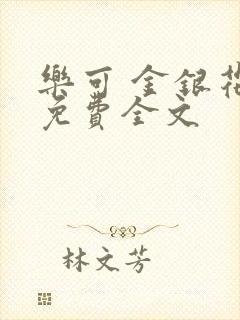 樂可 金銀花
免費全文
林文芳